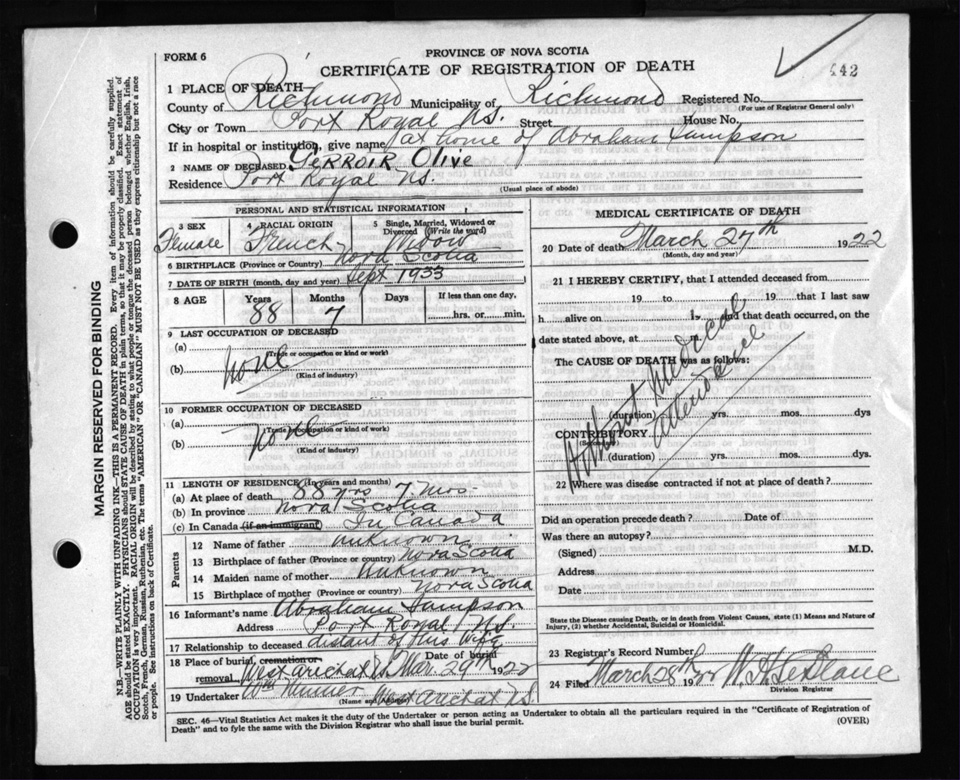 442
FORM 6
PROVINCE OF NOVA SCOTIA
CERTIFICATE OF REGISTRATION OF DEATH
1 PLACE OF DEATH
County of Richmond Municipality of Richmond Registered No.
(For use of Registrar General only)
City or Town Port Royal N.S. Street House No.
If in hospital or institution, give name at home of Abraham Sampson
2 NAME OF DECEASED Terroir Olive
Residence Port Royal N.S.
(Usual place of abode)
PERSONAL AND STATISTICAL INFORMATION
3 SEX Female
4 RACIAL ORIGIN French
5 Single, Married, Widowed or Divorced (Write the word) Widow
6 BIRTHPLACE (Province or Country) Nova Scotia
7 DATE OF BIRTH (month, day and year) Sept 1933
8 AGE Years 88 Months 7 Days If less than one day, hrs. or min.
9 LAST OCCUPATION OF DECEASED
(a) none
(Trade or occupation or kind or work)
(b)
(Kind of industry)
10 FORMER OCCUPATION OF DECEASED
(a) none
(Trade or occupation or kind of work)
(b)
(Kind of industry)
11 LENGTH OF RESIDENCE (In years and months)
(a) At place of death 88 yrs 7 mos
(b) In province Nova Scotia
(c) In Canada (if an immigrant) In Canada
Parents
12 Name of father unknown
13 Birthplace of father (Province or country) Nova Scotia
14 Maiden name of mother unknown
15 Birthplace of mother (Province or country) Nova Scotia
16 Informant's name Abraham Sampson
Address Port Royal N.S.
17 Relationship to deceased distant of his wife
18 Place of burial, cremation or removal West Arichat Date of burial Mar. 29th 1922
19 Undertaker West Arichat N.S.
(Name and address)
MEDICAL CERTIFICATE OF DEATH
20 Date of death March 27th 1922
(Month, day and year)
21 I HEREBY CERTIFY, that I attended deceased from
19 to 19 that I last saw
h alive on and that death occurred, on
date stated above, at
The CAUSE OF DEATH was as follows:
Without Medical attendance
(duration) yrs. mos. days
CONTRIBUTORY
(Secondary)
(duration) yrs. mos. days
22 Where was disease contracted if not at place of death?
Did an operation precede death? Date of
Was there an autopsy?
(Signed) M.D.
Address
Date
State the Disease causing Death, or in death from Violent Causes, state (1) Means and Nature of
Injury, (2) whether Accidental, Suicidal or Homicidal.
23 Registrar's Record Number
24 Filed March 28th 1922
Division Registrar
SEC. 46—Vital Statistics Act makes it the duty of the Undertaker or person acting as Undertaker to obtain all the particulars required in the "Certificate of Registration of
Death" and to fyle the same with the Division Registrar who shall issue the burial permit.
(OVER)
MARGIN RESERVED FOR BINDING
N.B.—WRITE PLAINLY WITH UNFADING INK—THIS IS A PERMANENT RECORD. Every item of information should be carefully supplied.
AGE should be stated EXACTLY. PHYSICIANS should STATE CAUSE OF DEATH in plain terms, so that it may be properly classified. Exact statement of
OCCUPATION is very important. RACIAL ORIGIN will be described by stating to what people or tongue the deceased person belonged whether English, Irish,
Scotch, French, German, Russian, Ruthenian, etc. The terms "AMERICAN" OR "CANADIAN" MUST NOT BE USED as they express citizenship but not a race
or people. See instructions on back of Certificate.